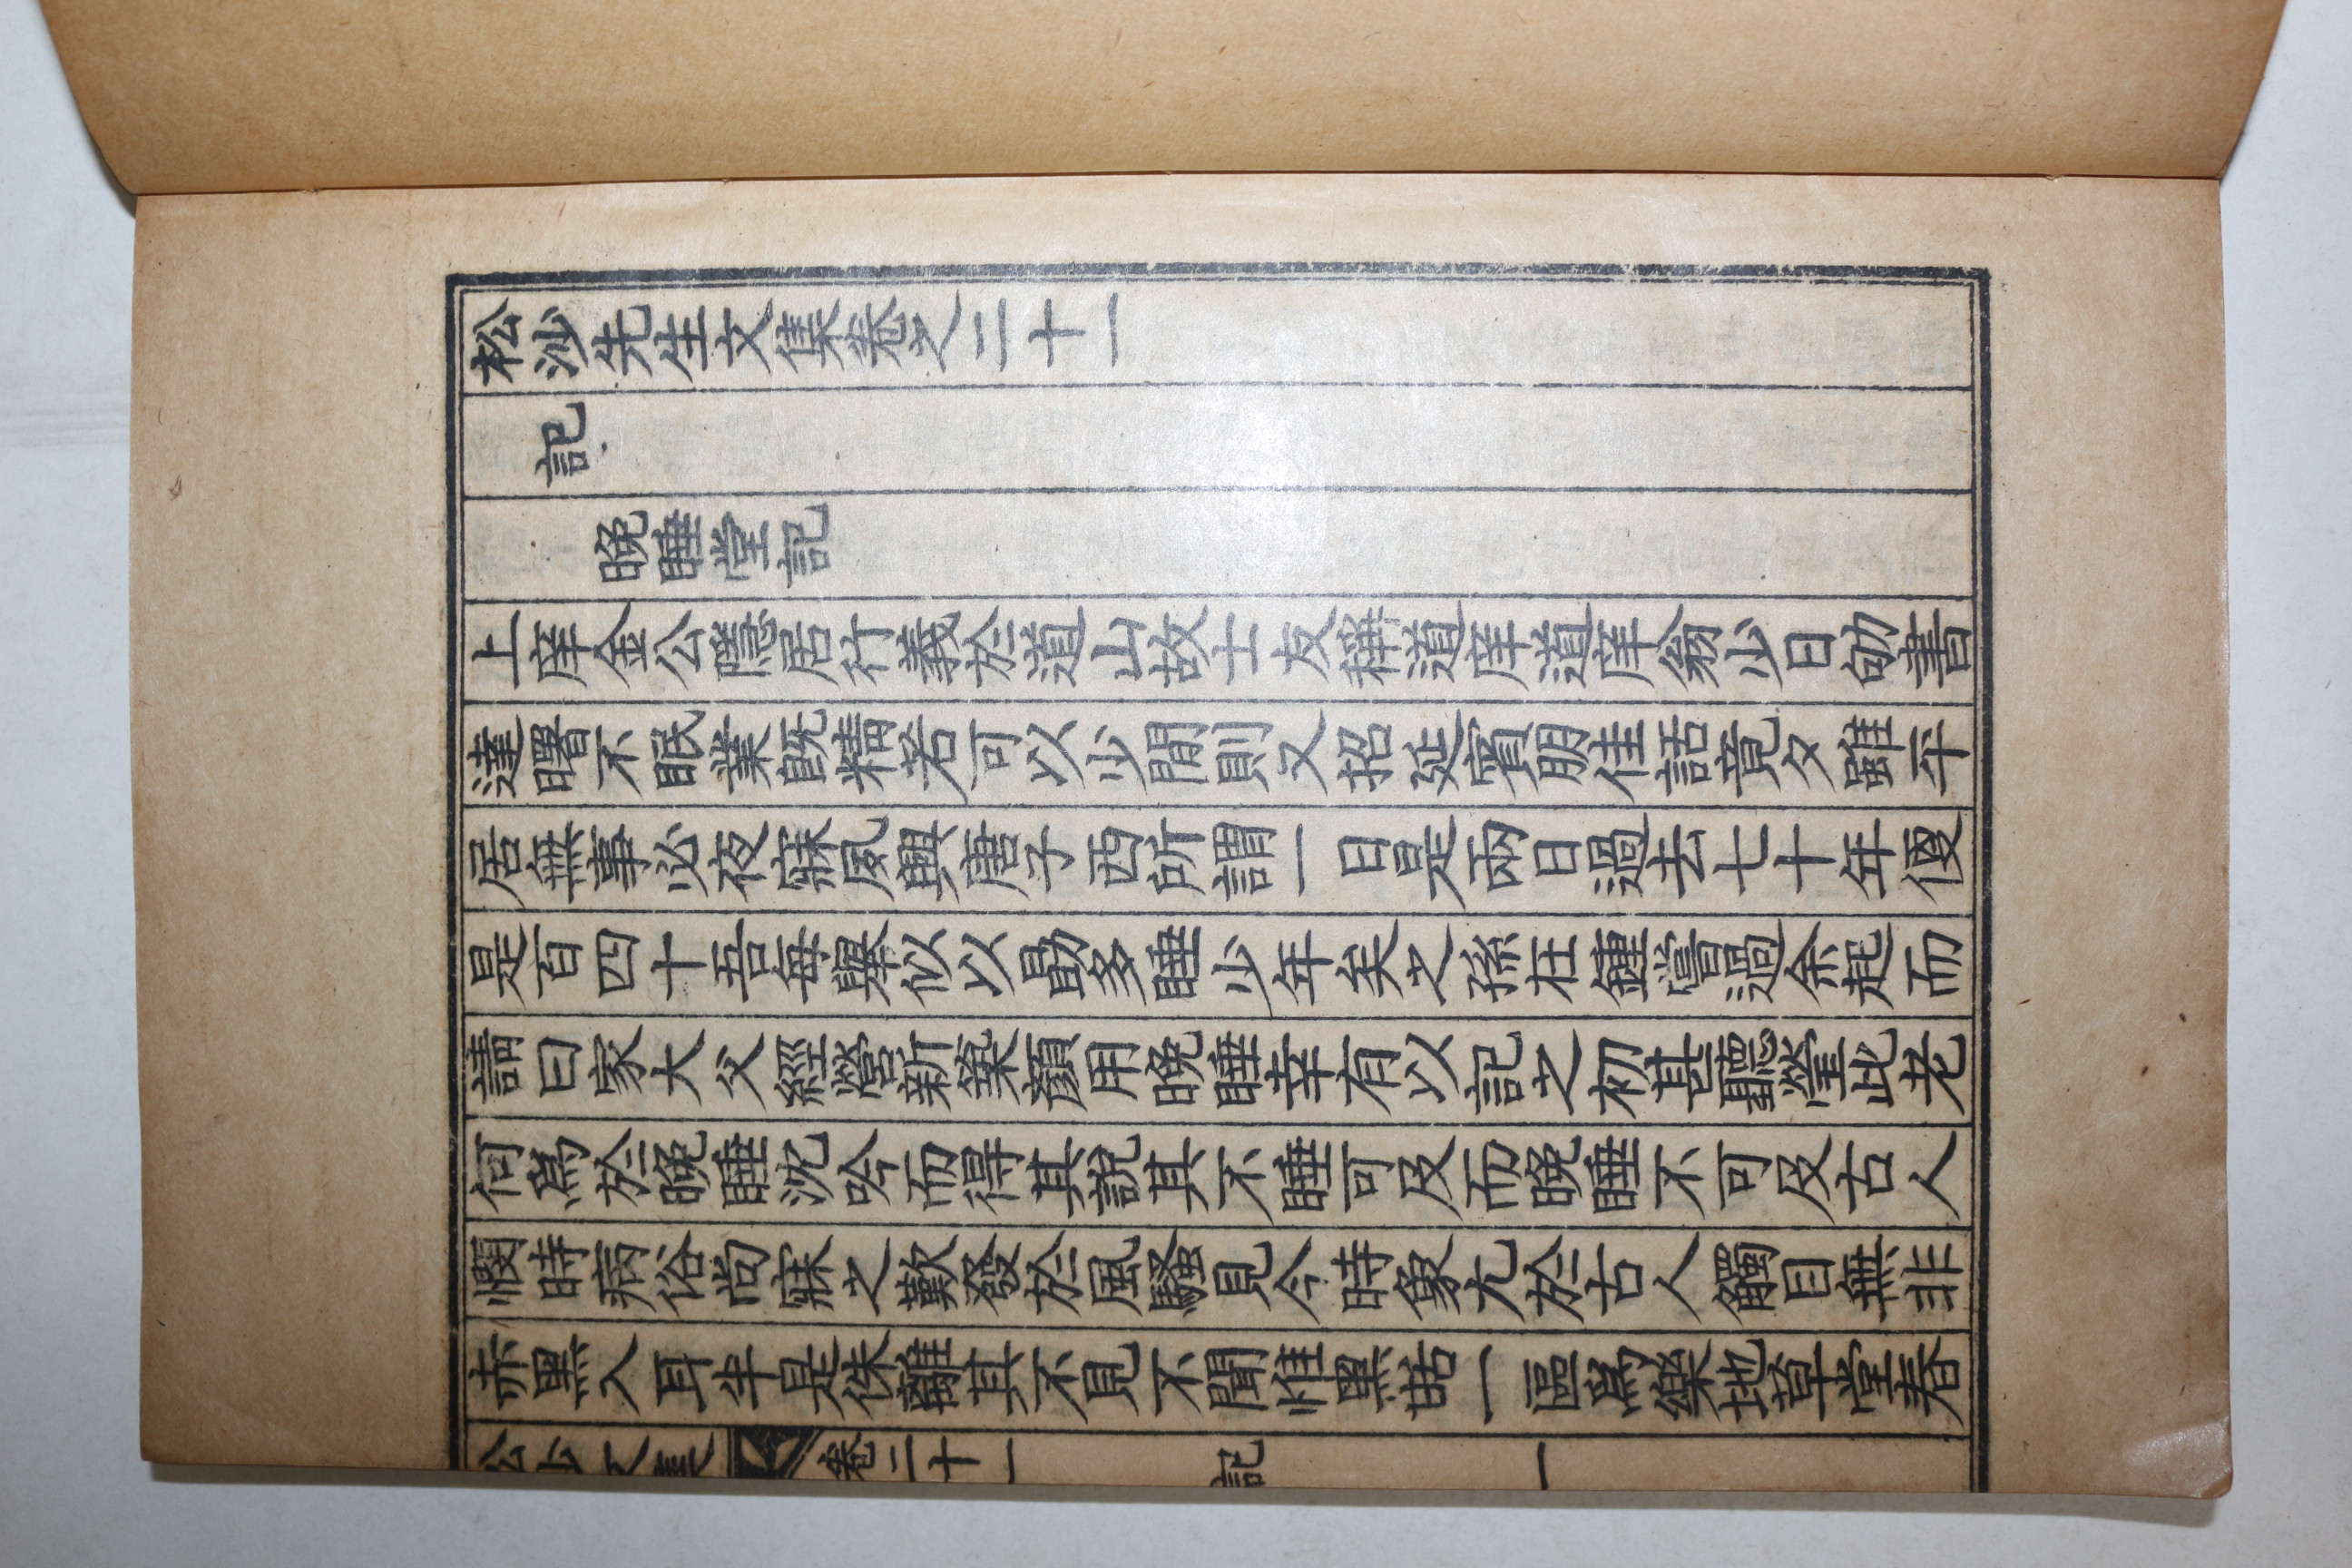 松沙先生文集卷之二十一
記
晩睡堂記
上庠金公隱居行義於道山故士友稱道庠道庠翁少日劬書
達曙不眠業旣精若可以少間則又招延賓朋佳話竟夕雖平
居無事必夜寐夙興唐子西所謂一日是兩日過去七十年便
是百四十吾每擧似以勗多睡少年矣之孫在鍾嘗過余起而
請曰家大父經營新築顏用晩睡幸有以記之初甚聽瑩此老
何爲於晩睡沈吟而得其說其不睡可及而晩睡不可及古人
憫時病俗尙寐之歎發於風騷見今時象尤於古人觸目無非
赤黑入耳半是侏離其不見不聞惟黑甛一區爲樂地草堂春
松沙文集 卷二十一 記 一